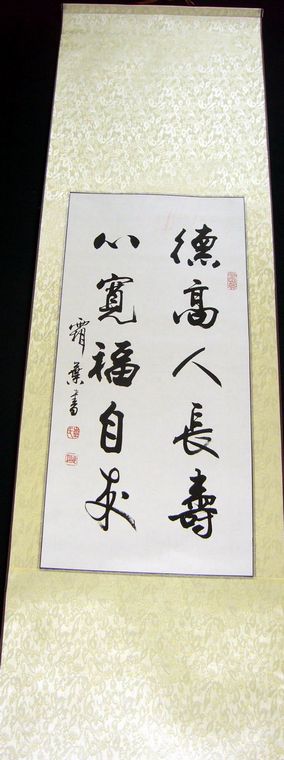 德高人長壽
心寬福自來
書